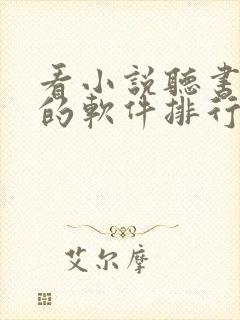 看小説聽書
的軟件排行
艾尔摩